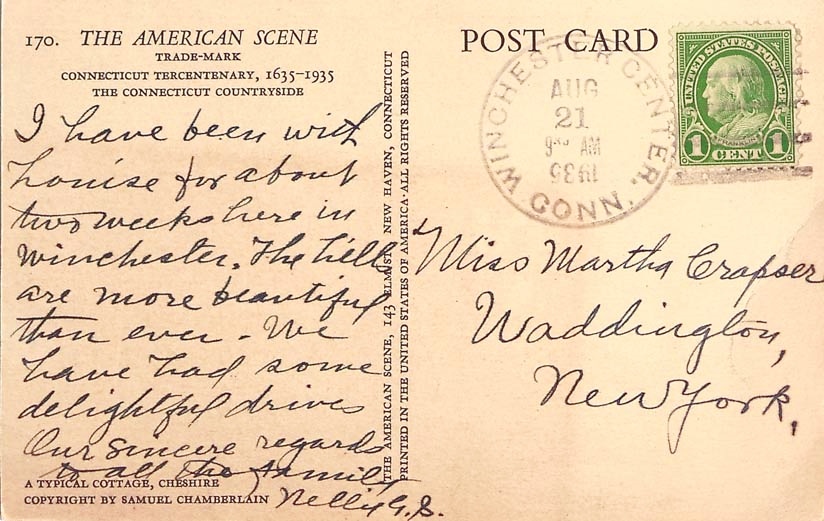 170. THE AMERICAN SCENE
TRADE-MARK
CONNECTICUT TERCENTENARY, 1635-1935
THE CONNECTICUT COUNTRYSIDE
I have been with
Louise for about
two weeks here in
Winchester. The hills
are more beautiful
than ever - We
have had some
delightful drives
Our sincere regards
to all the family
Nellie G. S.
A TYPICAL COTTAGE, CHESHIRE
COPYRIGHT BY SAMUEL CHAMBERLAIN
THE AMERICAN SCENE, 143 ELM ST. NEW HAVEN, CONNECTICUT
PRINTED IN THE UNITED STATES OF AMERICA·ALL RIGHTS RESERVED
POST CARD
WINCHESTER CENTER,
AUG
21
AM
1935
CONN.
UNITED STATES POSTAGE
FRANKLIN
1 CENT 1
Miss Martha Crapser
Waddington,
New York,